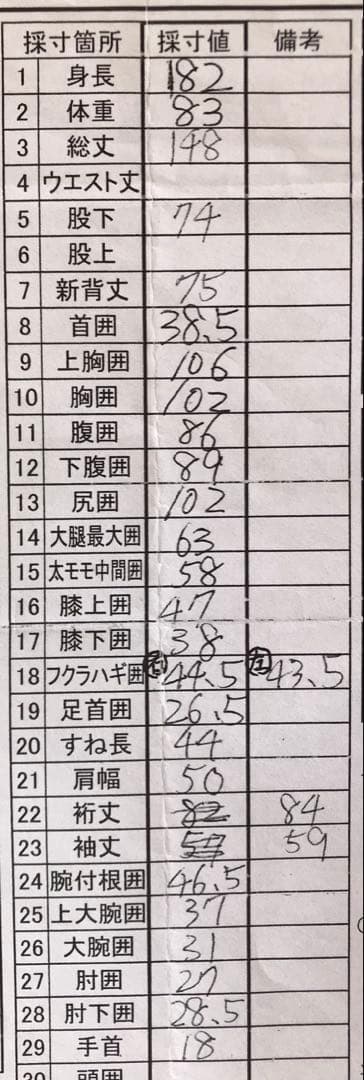 採寸箇所 採寸値 備考
1 身長 182
2 体重 83
3 総丈 148
4 ウエスト丈
5 股下 74
6 股上
7 新背丈 75
8 首囲 38.5
9 上胸囲 106
10 胸囲 102
11 腹囲 86
12 下腹囲 89
13 尻囲 102
14 大腿最大囲 63
15 太モモ中間囲 58
16 膝上囲 47
17 膝下囲 38
18 フクラハギ囲 右 44.5 左 43.5
19 足首囲 26.5
20 すね長 44
21 肩幅 50
22 裄丈 82 84
23 袖丈 59
24 腕付根囲 46.5
25 上大腕囲 37
26 大腕囲 31
27 肘囲 27
28 肘下囲 28.5
29 手首 18
30 頭囲